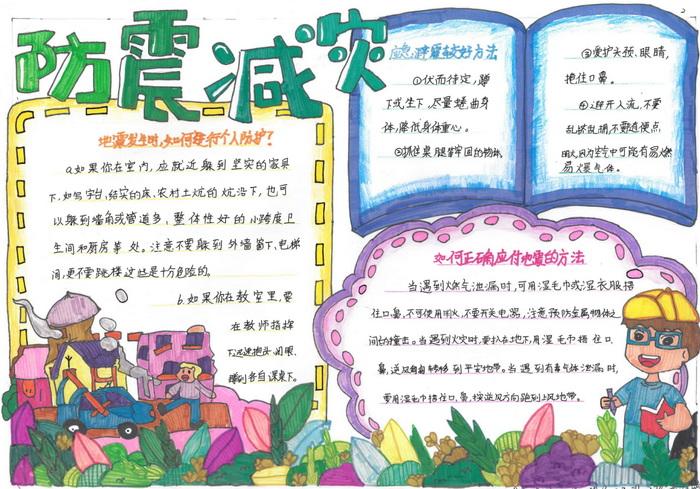 防震减灾
地震发生时,如何进行个人防护?
a.如果你在室内,应就近躲到坚实的家具
下,如写字台、结实的床、农村土炕的炕沿下,也可
以躲到墙角或管道多、整体性好的小跨度卫
生间和厨房等处。注意不要躲到外墙窗下、电梯
间,更不要跳楼这些是十分危险的。
b.如果你在教室里,要
在教师指挥
下迅速抱头、闭眼、
躲到各自课桌下。
应急避震较好方法
①伏而待定,蹲
下或坐下,尽量蜷曲身
体,降低身体重心。
②抓住桌腿等牢固的物体
③爱护头颈、眼睛,
掩住口鼻。
④避开人流,不要
乱挤乱拥,不要随便点
明火,因为空气中可能有易燃
易爆气体。
如何正确应付地震的方法
当遇到燃气泄漏时,可用湿毛巾或湿衣服捂
住口、鼻,不可使用明火,不要开关电器,注意预防金属物体之
间的撞击。当遇到火灾时,要趴在地下,用湿毛巾捂住口、
鼻,逆风匍匐转移到平安地带。当遇到有毒气体泄漏时,
要用湿毛巾捂住口、鼻,按逆风方向跑到上风地带。